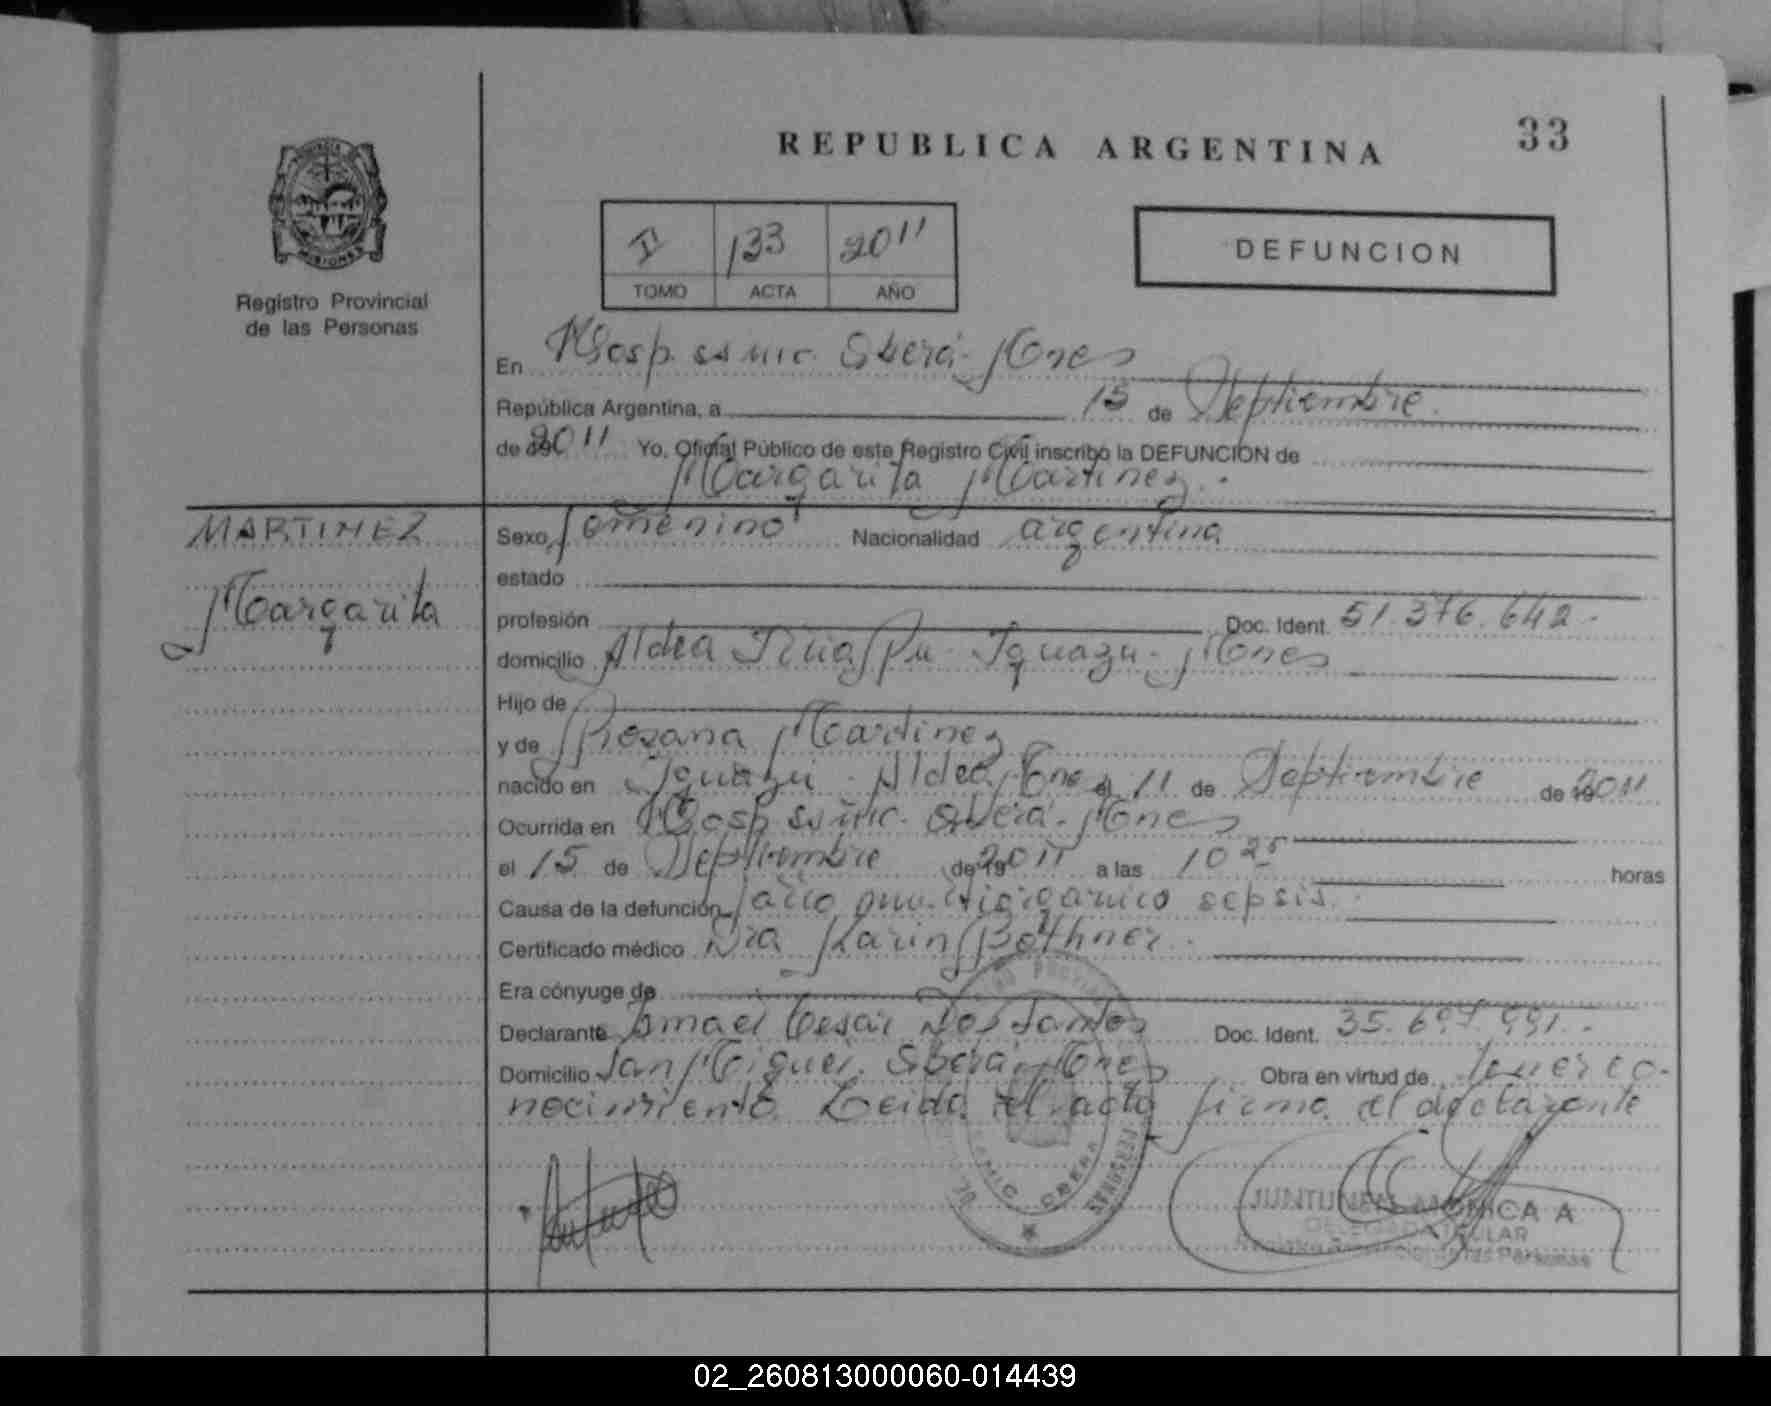 33
REPUBLICA ARGENTINA
PROVINCIA DE
MISIONES
Registro Provincial
de las Personas
II 133 2011
TOMO ACTA AÑO
DEFUNCION
En Hosp. ssmic. Oberá. Mnes
República Argentina, a 15 de Septiembre.
de 2011 Yo, Oficial Público de este Registro Civil inscribo la DEFUNCION de
Margarita Martinez.
MARTINEZ
Margarita
Sexo femenino Nacionalidad argentina
estado
profesión Doc. Ident. 51.376.642.-
domicilio Aldea Iguazu. Mones
Hijo de
y de Rosana Martinez
nacido en Iguazu. Aldea, Mnes el 11 de Septiembre de 2011
Ocurrida en Hosp ssmic. Oberá. Mnes
el 15 de Septiembre de 2011 a las 10 25 horas
Causa de la defunción fallo multiorganico sepsis.
Certificado médico Dra Karin Bothner.
Era cónyuge de
Declarante Ismael Cesar Dos Santos Doc. Ident. 35.697.991.-
Domicilio San Miguel. Oberá. Mnes Obra en virtud de tener co-
nocimiento. Leida el acta firma el declarante
SAMIC OBERA
JUNTUNEN MONICA A
DELEGADA TITULAR
Registro Provincial de las Personas
02_260813000060-014439